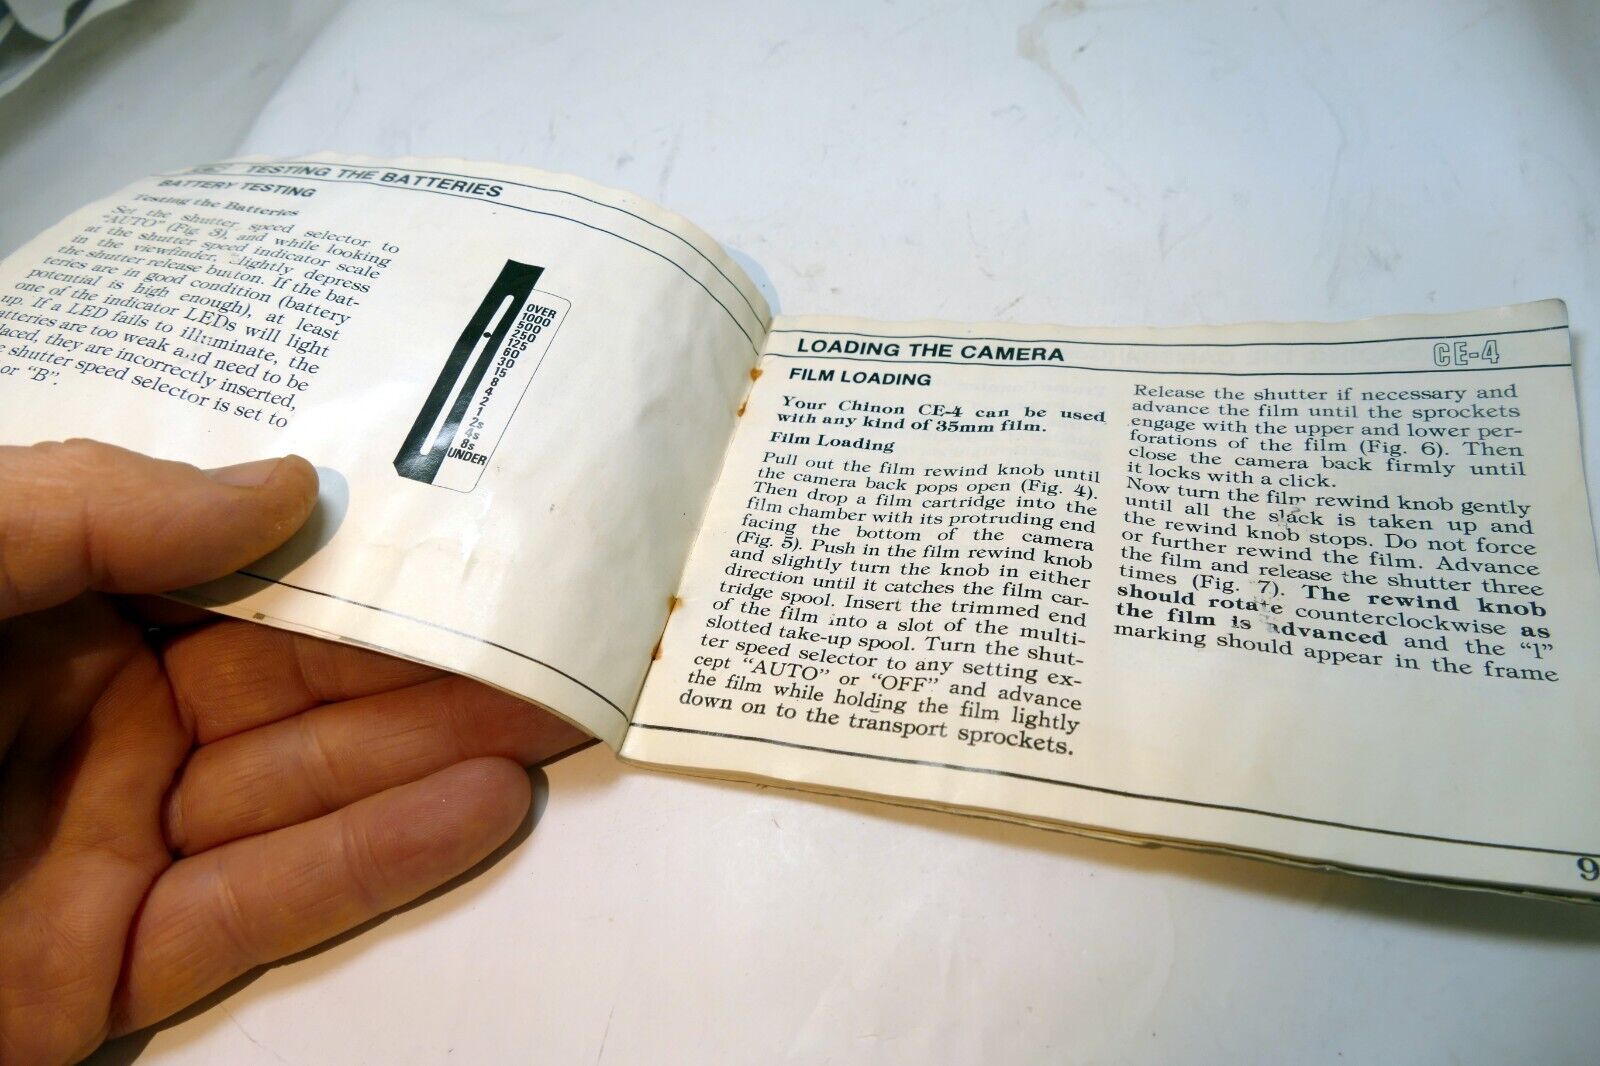 TESTING THE BATTERIES
BATTERY TESTING
Testing the Batteries
Set the shutter speed selector to
"AUTO" (Fig. 3), and while looking
at the shutter speed indicator scale
in the viewfinder, slightly depress
the shutter release button. If the bat-
teries are in good condition (battery
potential is high enough), at least
one of the indicator LEDs will light
up. If a LED fails to illuminate, the
atteries are too weak and need to be
laced, they are incorrectly inserted,
e shutter speed selector is set to
or "B".
OVER
1000
500
250
125
60
30
15
8
4
2
1
2s
4s
8s
UNDER
LOADING THE CAMERA
CE-4
FILM LOADING
Your Chinon CE-4 can be used
with any kind of 35mm film.
Film Loading
Pull out the film rewind knob until
the camera back pops open (Fig. 4).
Then drop a film cartridge into the
film chamber with its protruding end
facing the bottom of the camera
(Fig. 5). Push in the film rewind knob
and slightly turn the knob in either
direction until it catches the film car-
tridge spool. Insert the trimmed end
of the film into a slot of the multi-
slotted take-up spool. Turn the shut-
ter speed selector to any setting ex-
cept "AUTO" or "OFF" and advance
the film while holding the film lightly
down on to the transport sprockets.
Release the shutter if necessary and
advance the film until the sprockets
engage with the upper and lower per-
forations of the film (Fig. 6). Then
close the camera back firmly until
it locks with a click.
Now turn the film rewind knob gently
until all the slack is taken up and
the rewind knob stops. Do not force
or further rewind the film. Advance
the film and release the shutter three
times (Fig. 7). The rewind knob
should rotate counterclockwise as
the film is advanced and the "1"
marking should appear in the frame
9